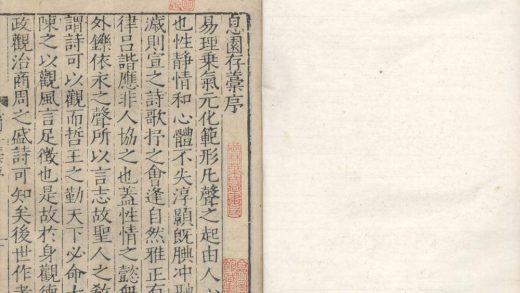 息園存稾序
易理乗氣元化範形凡聲之起由人心
也性静情和心體不失淳顥旣腆冲聮
滅則宣之詩歌抒之會逢自然雅正有
律吕諧應非人協之也蓋性情之懿無
外鑠依永之聲所以言志故聖人之教
謂詩可以觀而哲王之勤天下必命大
陳之以觀風言足徵也是故於身觀德
政觀治商周之盛詩可知矣後世作者